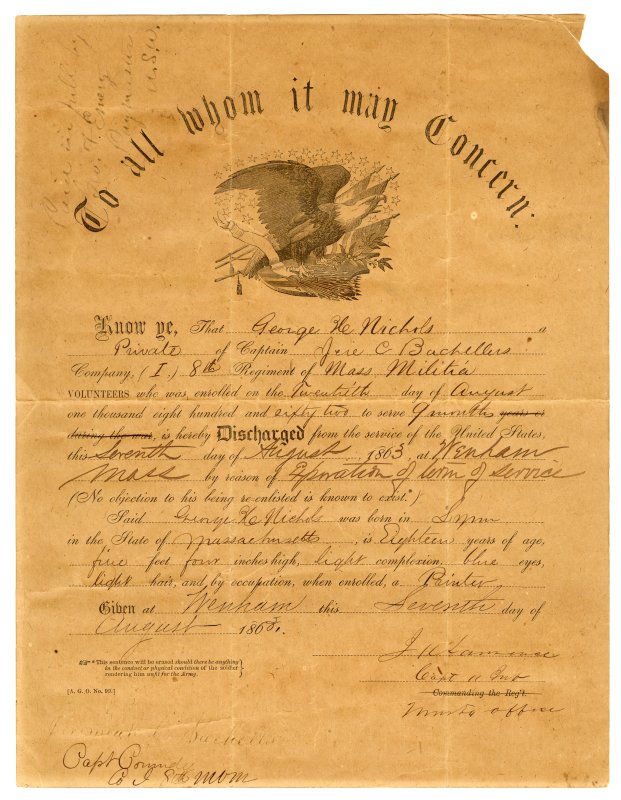 Paid in full by
Paymaster
U.S.A.
To all whom it may Concern:
Know ye, That George H Nichols a
Private of Captain Jere C Bachellers
Company, (I.) 8th Regiment of Mass. Militia
VOLUNTEERS who was enrolled on the Twentieth day of August
one thousand eight hundred and sixty two to serve 9 months years or
during the war, is hereby Discharged from the service of the United States,
this Seventh day of August, 1863, at Wenham
Mass by reason of Expiration of term of service
(No objection to his being re-enlisted is known to exist.*)
Said George H Nichols was born in Lynn
in the State of Massachusetts, is Eighteen years of age,
five feet four inches high, light complexion, blue eyes,
light hair, and, by occupation, when enrolled, a Painter
Given at Wenham this Seventh day of
August 1863.
*This sentence will be erased should there be anything
in the conduct or physical condition of the soldier
rendering him unfit for the Army.
[A. G. O. No. 99.]
Capt
Commanding the Reg't.
office
Capt
Co I 8th MVM